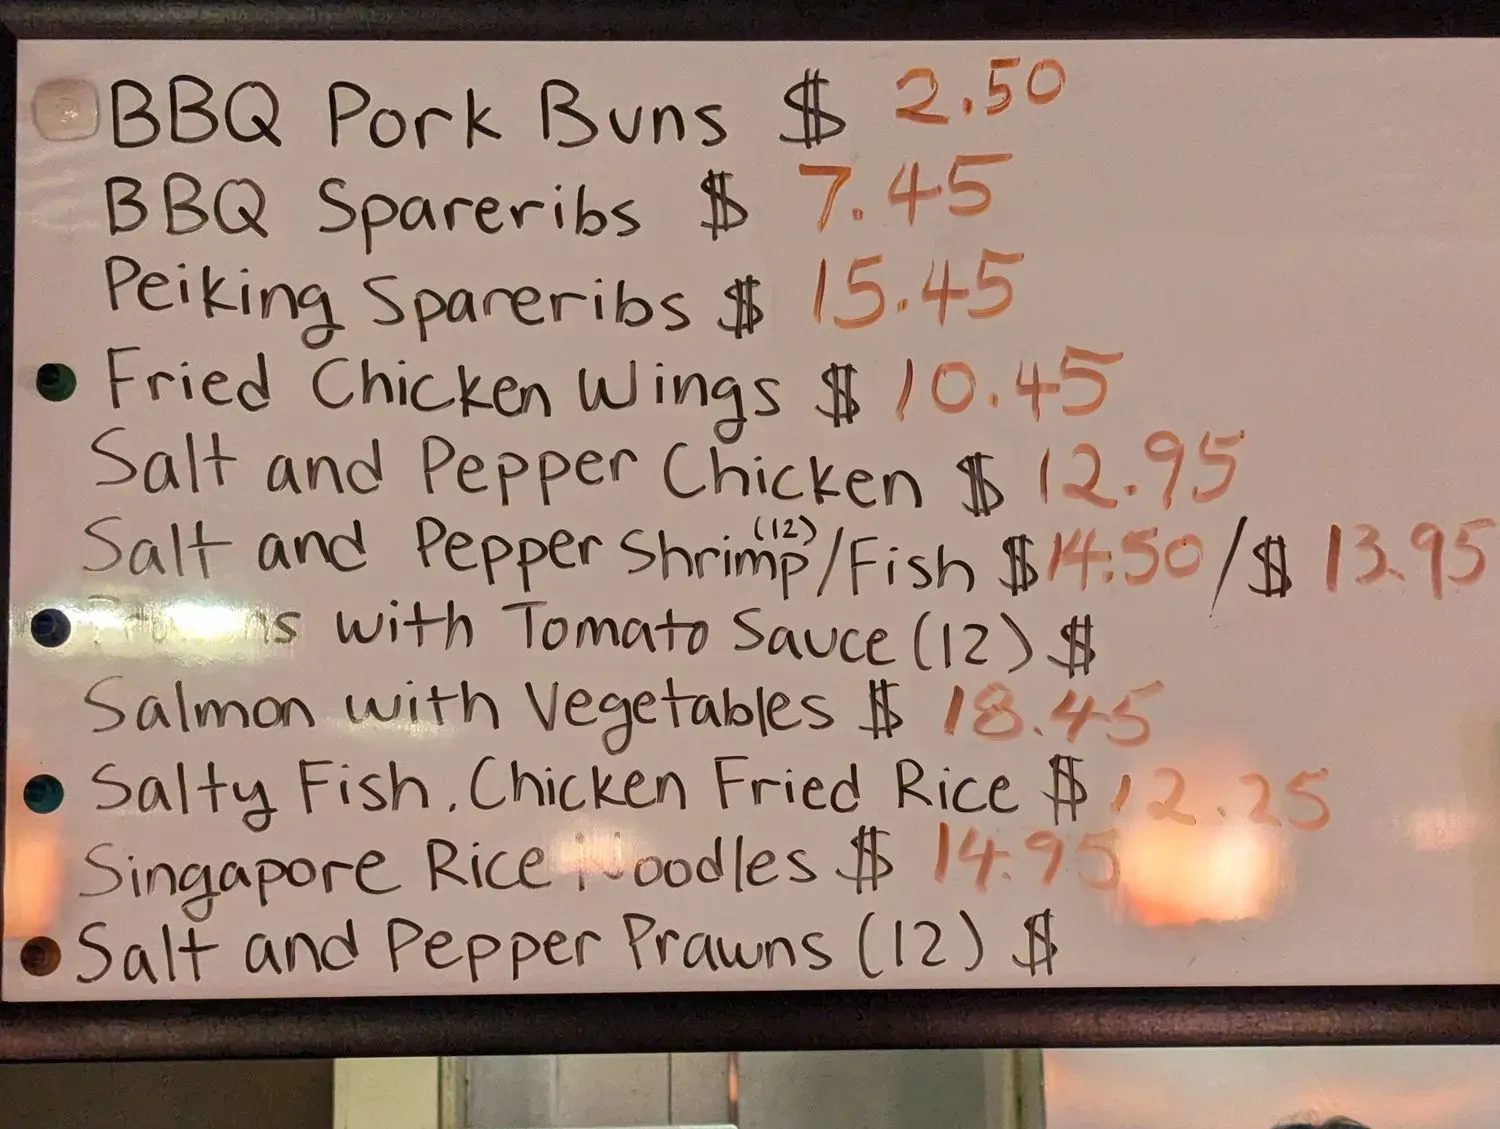 BBQ Pork Buns $ 2.50
BBQ Spareribs $ 7.45
Peiking Spareribs $ 15.45
Fried Chicken Wings $ 10.45
Salt and Pepper Chicken $ 12.95
Salt and Pepper Shrimp (12)/Fish $14.50/$ 13.95
with Tomato Sauce (12) $
Salmon with Vegetables $ 18.45
Salty Fish. Chicken Fried Rice $ 12.25
Singapore Rice Noodles $ 14.95
Salt and Pepper Prawns (12) $